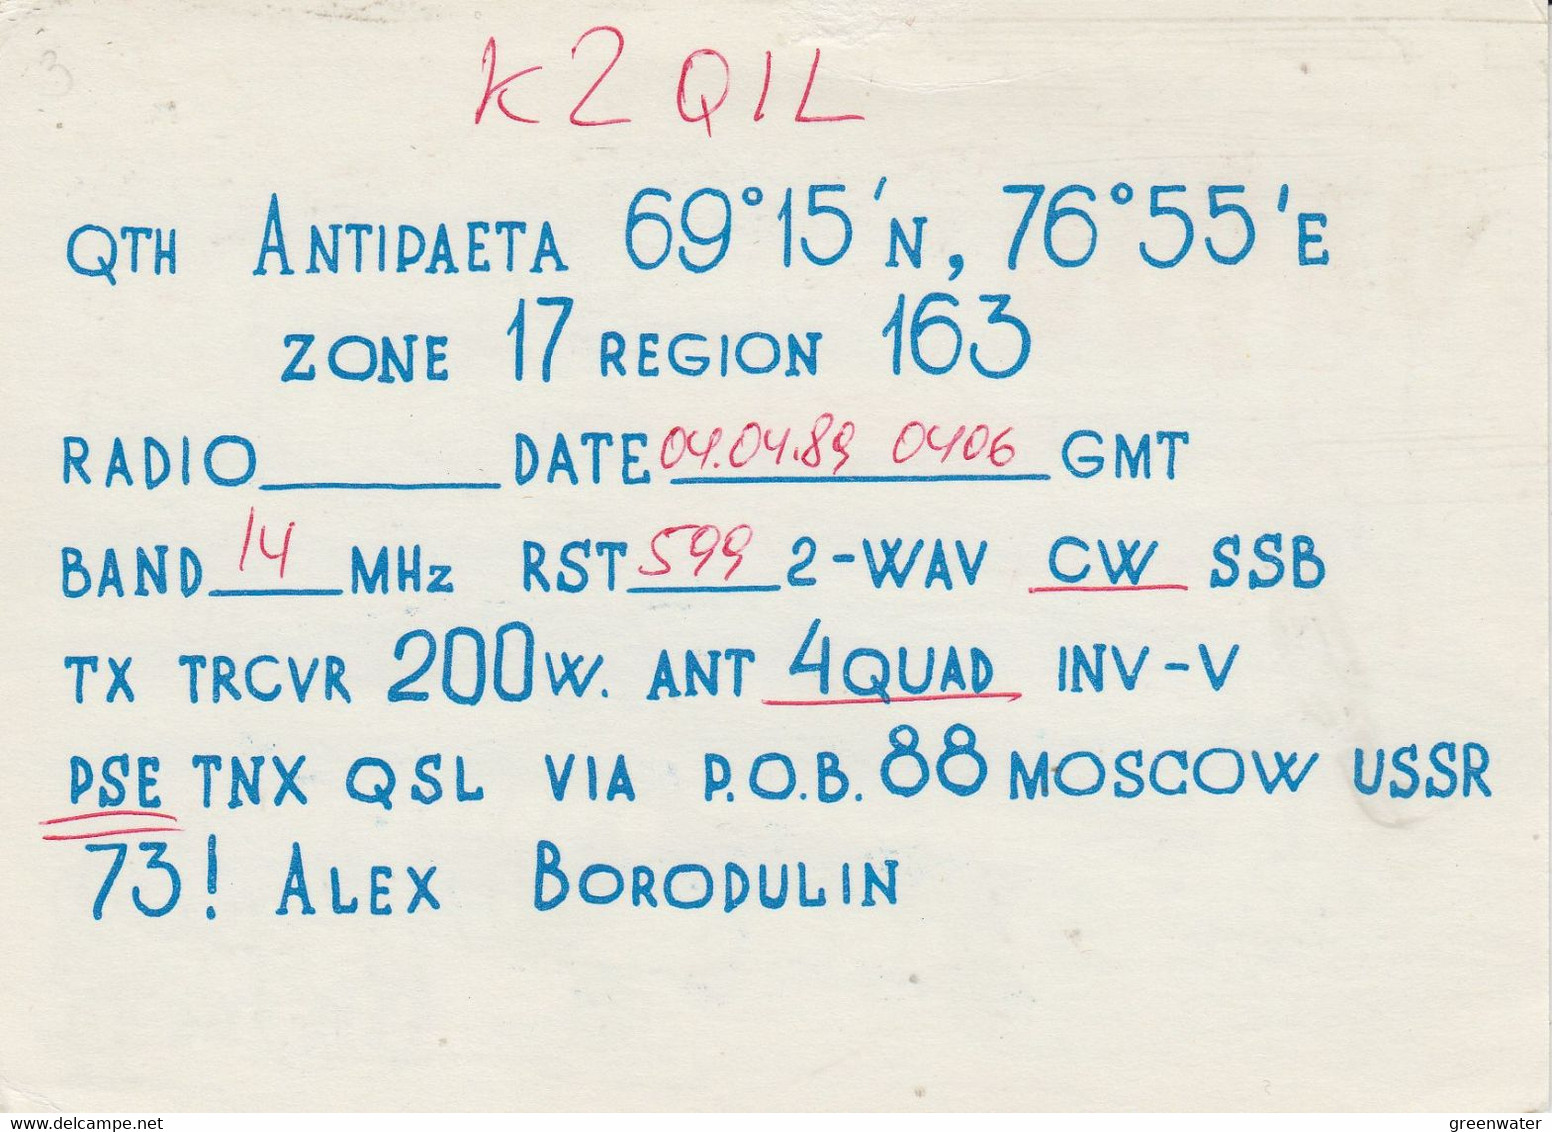 3
K2QIL
QTH ANTIPAETA 69°15'N, 76°55'E
ZONE 17 REGION 163
RADIO DATE 04.04.89 0406 GMT
BAND 14 MHz RST 599 2-WAV CW SSB
TX TRCVR 200W. ANT 4QUAD INV-V
PSE TNX QSL VIA P.O.B. 88 MOSCOW USSR
73! ALEX BORODULIN
greenwater